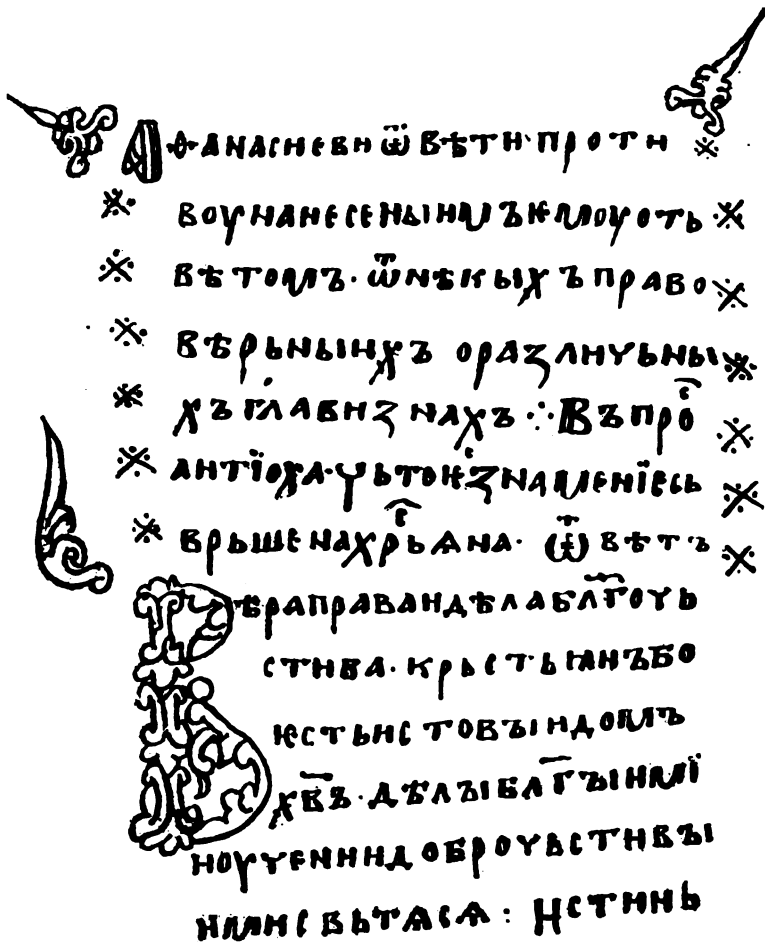 Аѳанасиеви ѿвѣти·проти
воунанесеныимъѥмоуоть
вѣтомъ·ѿнѣкыхъправо
вѣрьныихъ оразличьны
хъглавизнахъ ⁘ Въпроⷭ҇
антїоха·чьтоѥⷭ҇знаменїесь
врьшенахрⷭ҇ьѧна· ѿвѣтъ
Вѣраправаидѣлабл҃гочь
стива·крьстьꙗнъбо
ѥстьистовъıидомъ
хв҃ъ·дѣлъıбл҃гъıимї
иоучениидоброчьстивъı
имисвьтѧсѧ : Истинь